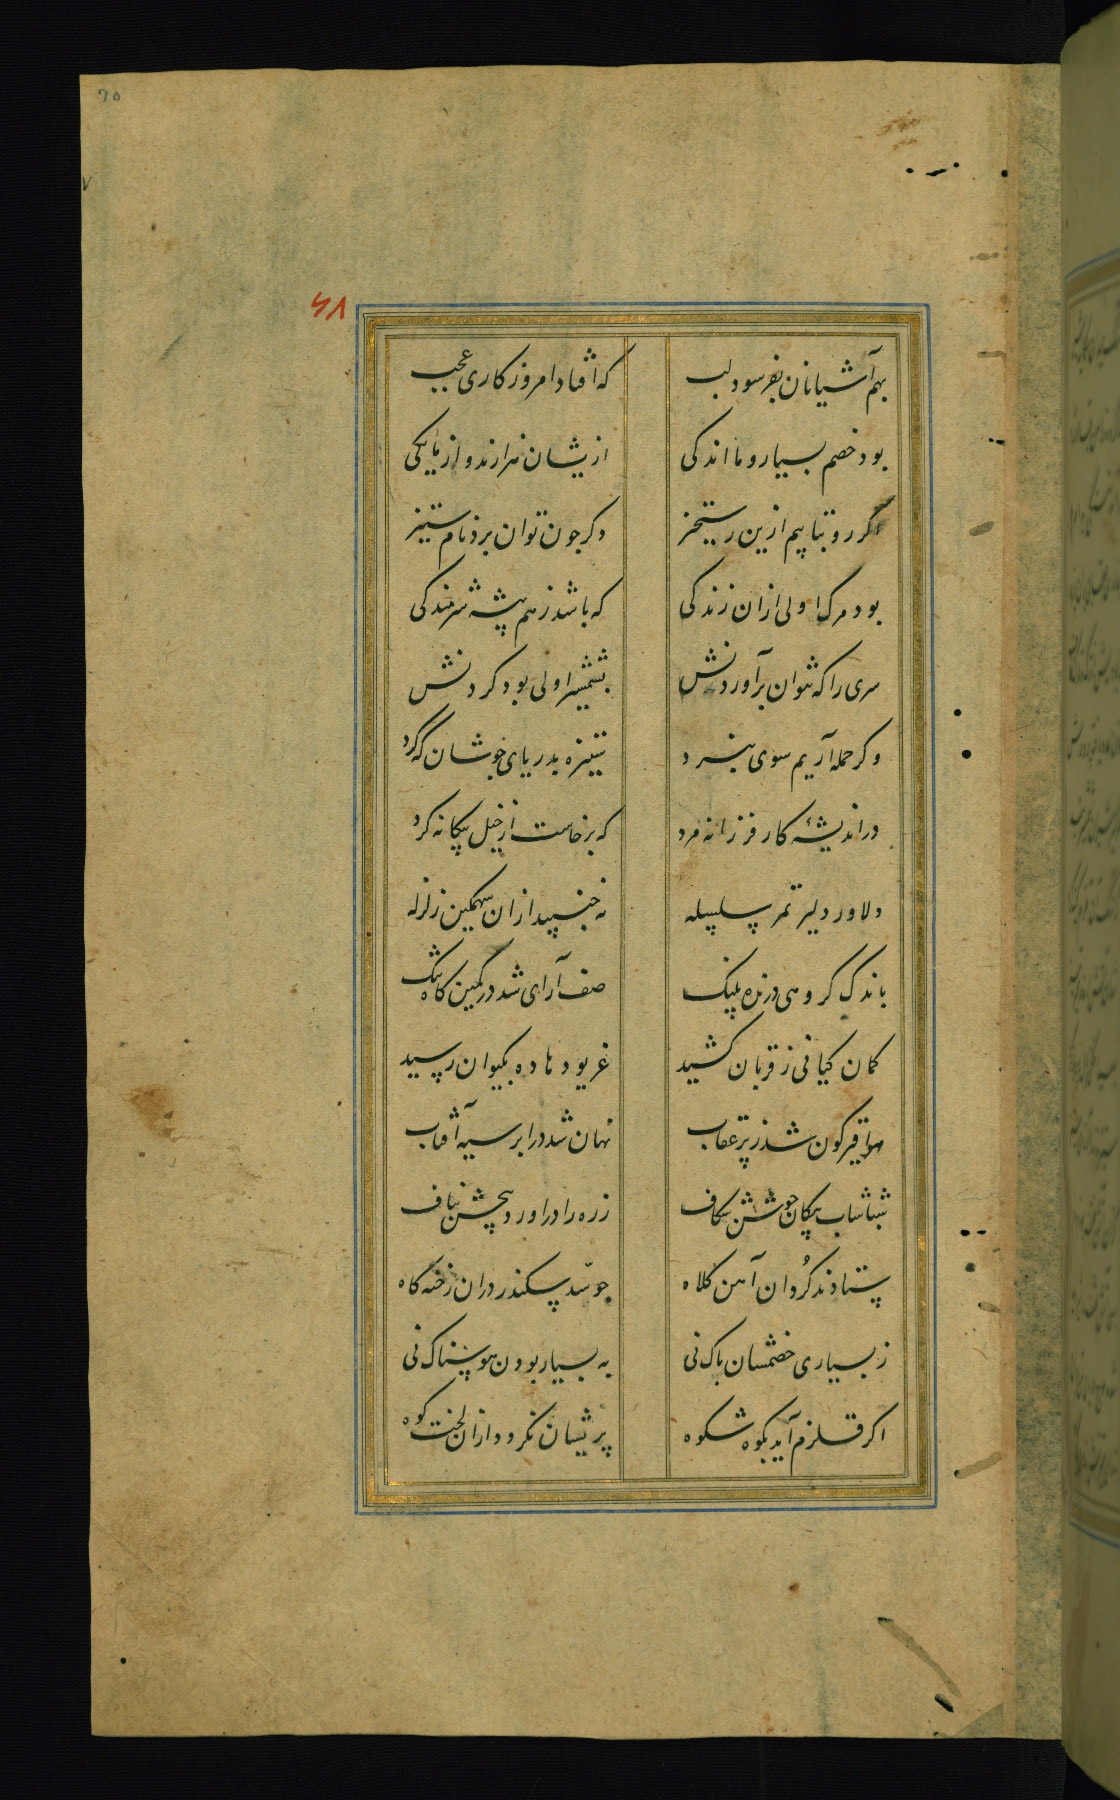 70
۶۸
بهم آشیانان بفرسود لب که افتاد امروز کاری عجب
بود خصم بسیار و ما اندکی ازیشان هزارند و از ما یکی
اگر رو بتابیم ازین رستخیز دکر چون توان برد نام ستیز
بود مرک اولی ازان زندکی که باشد ز هم پیشه شرمندکی
سری را که نتوان برآوردنش بشمشیر اولی بود کردنش
وکر حمله آریم سوی نبرد ستیزه بدریای جوشان که کرد
در اندیشهٔ کار فرزانه مرد که برخاست از خیل بیکانه کرد
دلاور دلیر تمر سلسله نه جنبید ازان سهمکین زلزله
باندک کروهی درنده پلنک صف آرای شد در کمین کاه تنک
کمان کیانی ز قربان کشید غریو دهاده بکیوان رسید
هوا قیرکون شد ز پر عقاب نهان شد در ابر سیه آفتاب
شباشاب پیکان جوشن شکاف زره را درآورد بجشن بناف
ستادند کُردان آهن کلاه جو سّد سکندر دران رخنه کاه
ز بسیاری خصمشان باک نی به بسیار بودن هوسناک نی
اکر قلزم آید بکوه شکوه پریشان نکردد ازان لخت کوه